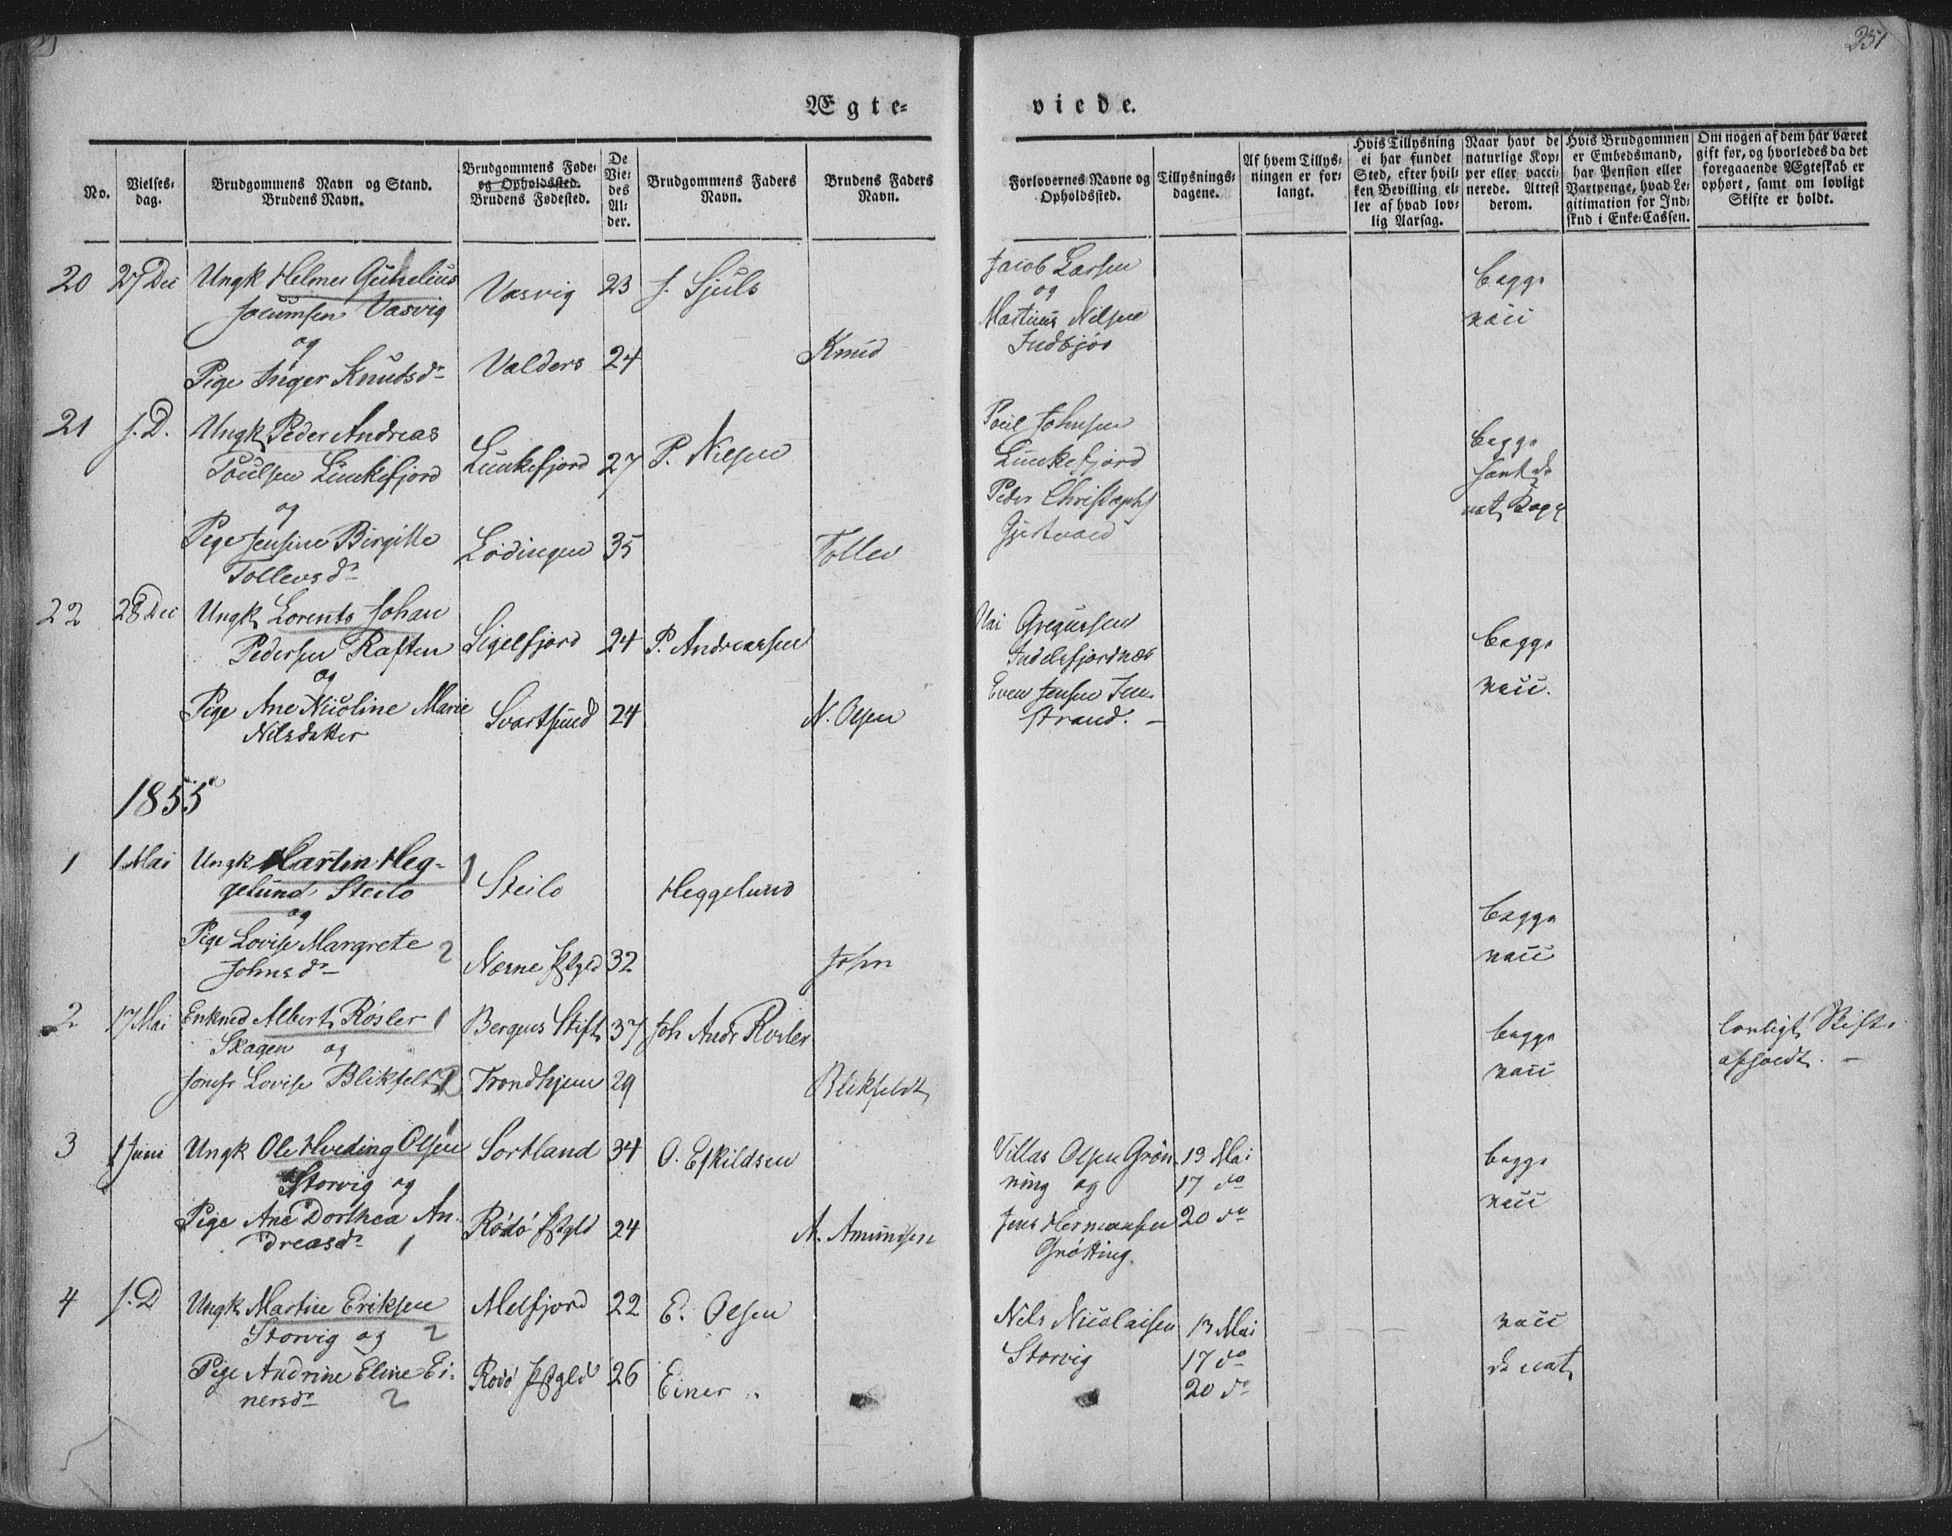 251
Ægte-
viede.
No.
Vielses-
dag.
Brudgommens Navn og Stand.
Brudens Navn.
Brudgommens Føde-
og Opholdssted.
Brudens Fødested.
De
Vie-
des
Al-
der.
Brudgommens Faders
Navn.
Brudens Faders
Navn.
Forlovernes Navne og
Opholdssted.
Tillysnings-
dagene.
Af hvem Tillys-
ningen er for-
langt.
Hvis Tillysning
ei har fundet
Sted, efter hvil-
ken Bevilling el-
ler af hvad lov-
lig Aarsag.
Naar havt de
naturlige Kop-
per eller vacci-
nerede. Attest
derom.
Hvis Brudgommen
er Embedsmand,
har Pension eller
Vartpenge, hvad Le-
gitimation for Ind-
skud i Enke-Cassen.
Om nogen af dem har været
gift før, og hvorledes da det
foregaaende Ægteskab er
ophørt, samt om lovligt
Skifte er holdt.
20 27 Dec Ungk Helmer
Vasvig
og
Pige Inger Knudsd
Vasvig 23 J. Sjuls
Valders 24 Knud
Jacob Larsen
og
Martinus Nilsen
Indbjør
begge
vacc
21 s. D. Ungk Peder Andreas
Poulsen Lunkefjord
og
Pige Jensine Birgitte
Tollevsd
Lunkefjord 27 P. Nilsen
Lødingen 35 Tollev
Poul Johnsen
Lunkefjord
Peder Christoph
begge
havt de
nat Kopp
22 28 Dec Ungk Lorents Johan
Pedersen Raften
og
Pige Ane Nicoline Marie
Nilsdatter
Sigelfjord 24 P. Andreassen
Svartsund 24 N. Olsen
Gregersen
Indlefjordnes
Even Jensen Jen-
strand. -
begge
vacc.
1855
1 1 Mai Ungk Martin Heg- 1
gelund Steilo
og
Pige Lovise Margrete 2
Johnsd
Steilo Heggelund
Næsne Pstgld 32 John
begge
vacc
2 17 Mai Enkmd Albert Røsler 1
Skagen og
Jomfr Lovise Blikfelt 2
Bergens Stift 37 Joh Andr Rosler
Trondhjem 29 Blikfeldt
begge
vacc
lovligt Skifte
afholdt. -
3 1 Juni Ungk Ole Hveding Olsen 1
Storvig og
Pige Ane Dorthea An-
dreasd 1
Sortland 34 O. Eskildsen
Rødø Pstgld 24 A. Amundsen
Villas Olsen Grøn-
ning og
Jens Hermansen
Grøtting
13 Mai
17 do
20 do
begge
vacc
4 s. D Ungk Martin Eriksen
Storvig og 2
Pige Andrine Eline Ei-
nersd 2
Melfjord 22 E. Olsen
Rødø Pstgld 26 Einer
Nils Nicolaisen
Storvig
13 Mai
17 do
20 do
vacc
do nat